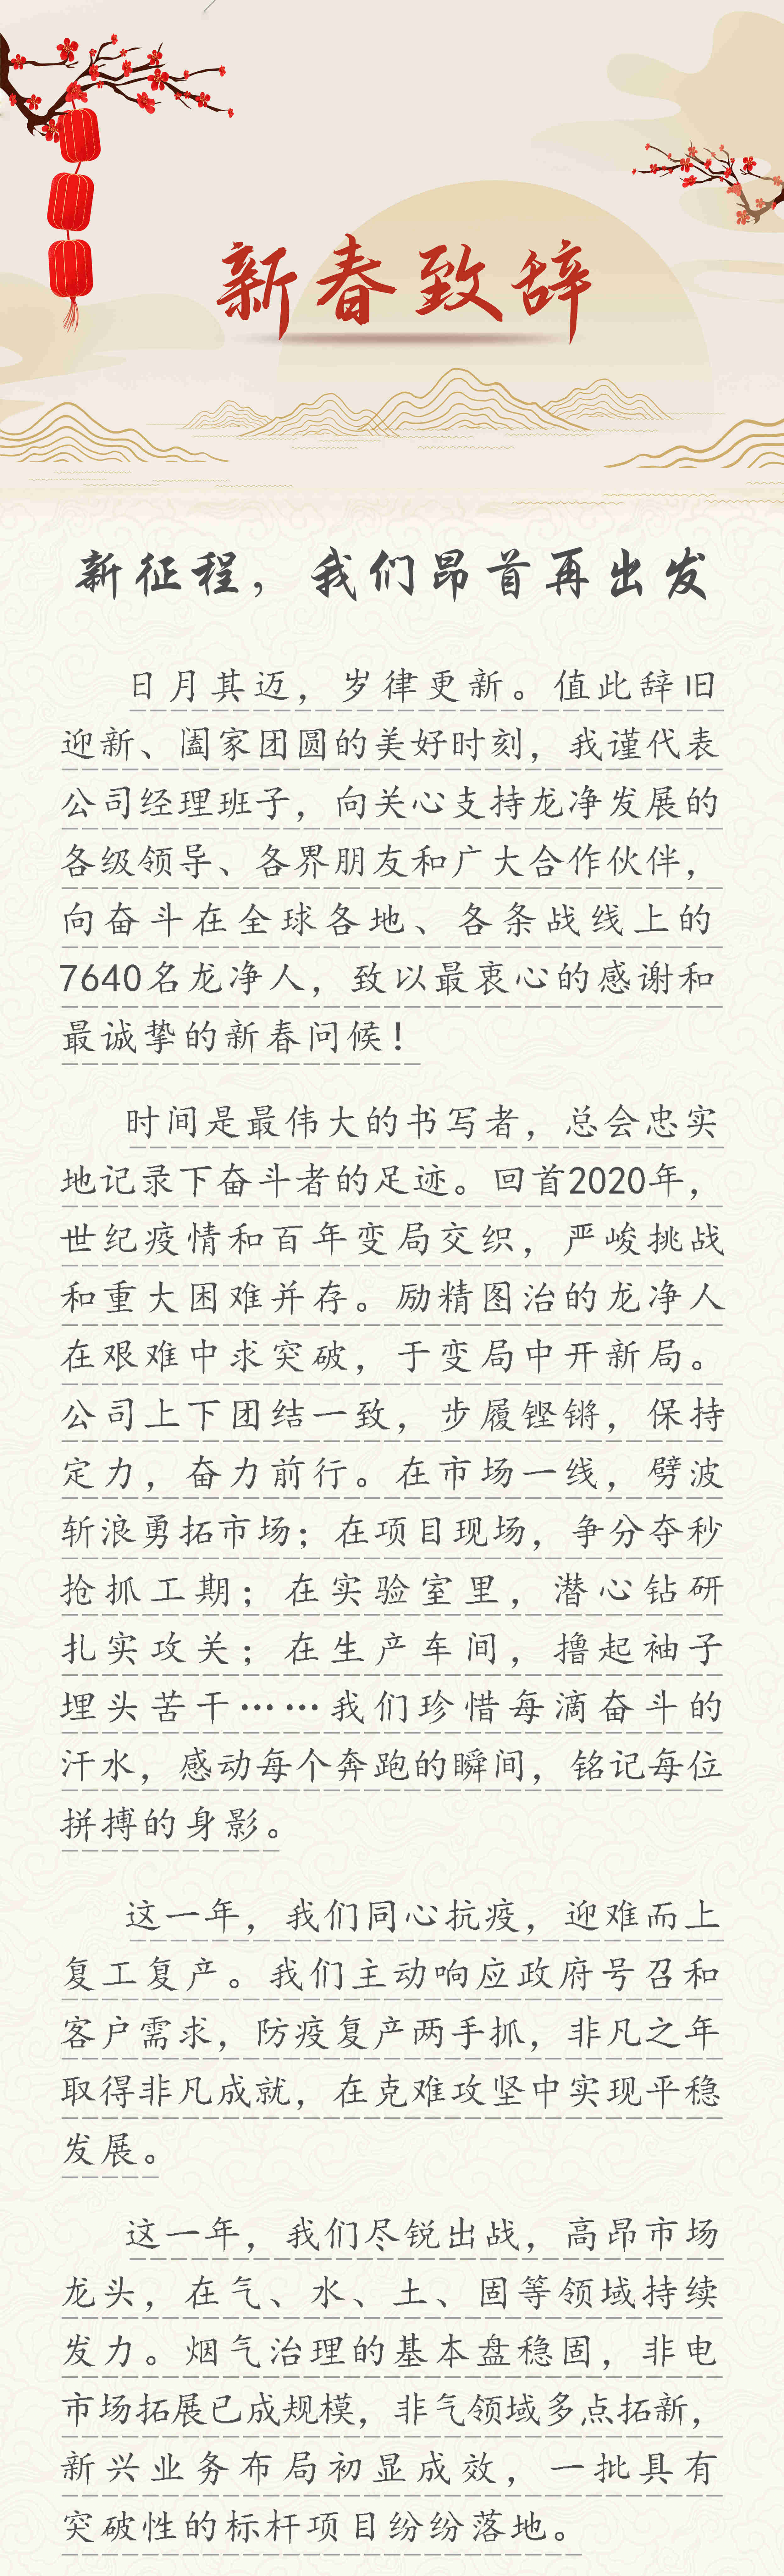 新春致辞
新征程，我们昂首再出发
日月其迈，岁律更新。值此辞旧
迎新、阖家团圆的美好时刻，我谨代表
公司经理班子，向关心支持龙净发展的
各级领导、各界朋友和广大合作伙伴，
向奋斗在全球各地、各条战线上的
7640名龙净人，致以最衷心的感谢和
最诚挚的新春问候！
时间是最伟大的书写者，总会忠实
地记录下奋斗者的足迹。回首2020年，
世纪疫情和百年变局交织，严峻挑战
和重大困难并存。励精图治的龙净人
在艰难中求突破，于变局中开新局。
公司上下团结一致，步履铿锵，保持
定力，奋力前行。在市场一线，劈波
斩浪勇拓市场；在项目现场，争分夺秒
抢抓工期；在实验室里，潜心钻研
扎实攻关；在生产车间，撸起袖子
埋头苦干……我们珍惜每滴奋斗的
汗水，感动每个奔跑的瞬间，铭记每位
拼搏的身影。
这一年，我们同心抗疫，迎难而上
复工复产。我们主动响应政府号召和
客户需求，防疫复产两手抓，非凡之年
取得非凡成就，在克难攻坚中实现平稳
发展。
这一年，我们尽锐出战，高昂市场
龙头，在气、水、土、固等领域持续
发力。烟气治理的基本盘稳固，非电
市场拓展已成规模，非气领域多点拓新，
新兴业务布局初显成效，一批具有
突破性的标杆项目纷纷落地。